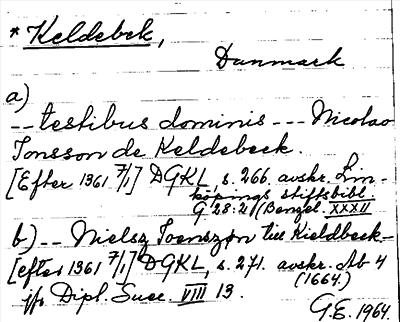 * Keldebek,
Danmark
a)
-- testibus dominis --- Nicolao
Jonsson de Keldebeck.
[Efter 1361 7/1] DGKL, s. 266, avskr. Lin-
köpings stiftsbibl.
G 28:21 (Benzel. XXXII
b) -- Nielsz Joenszøn till Kieldbeck --
[efter 1361 7/1] DGKL, s. 271. avskr. Ab 4
(1664.)
jfr Dipl. Suec. VIII 13.
G.E. 1964.